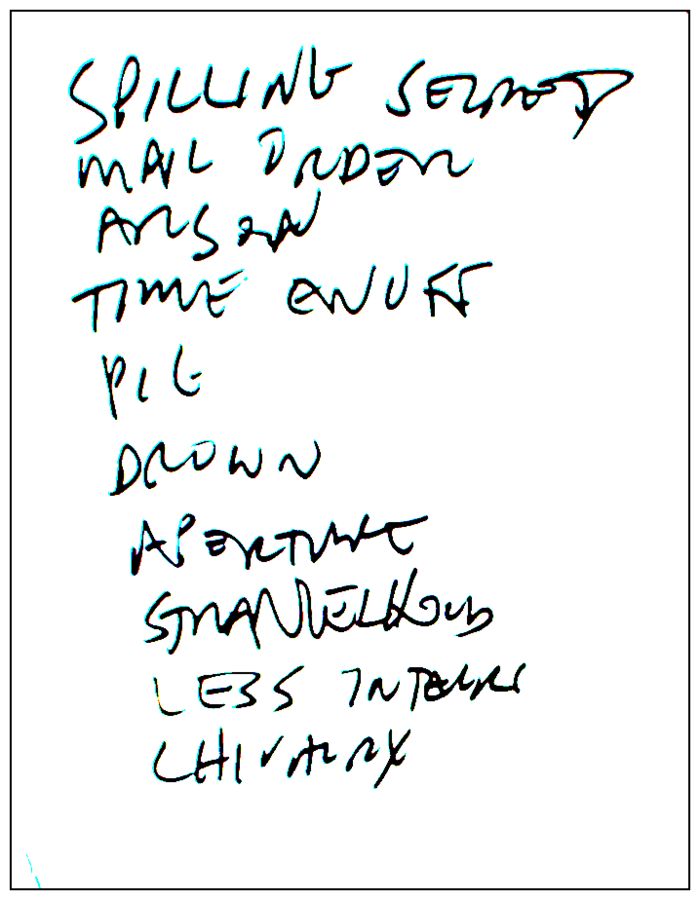 SPILLING SECRET
MAIL ORDER
ARSON
TIME ENUFF
PIG
DROWN
APERTURE
STRANGLEHOLD
LESS INTENSE
CHIVALRY